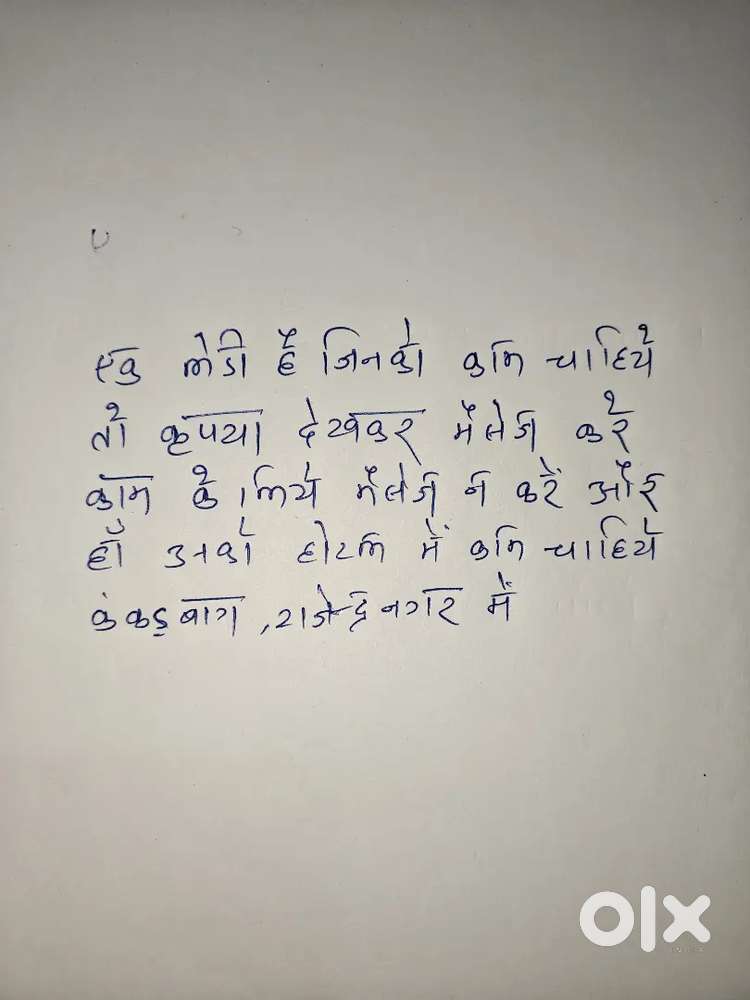 एक लेडी है जिनको काम चाहिये
तो कृपया देखकर मैसेज करे
काम के लिये मैसेज न करें और
हाँ उनको होटल में काम चाहिये
कंकड़बाग, राजेन्द्रनगर में
olx